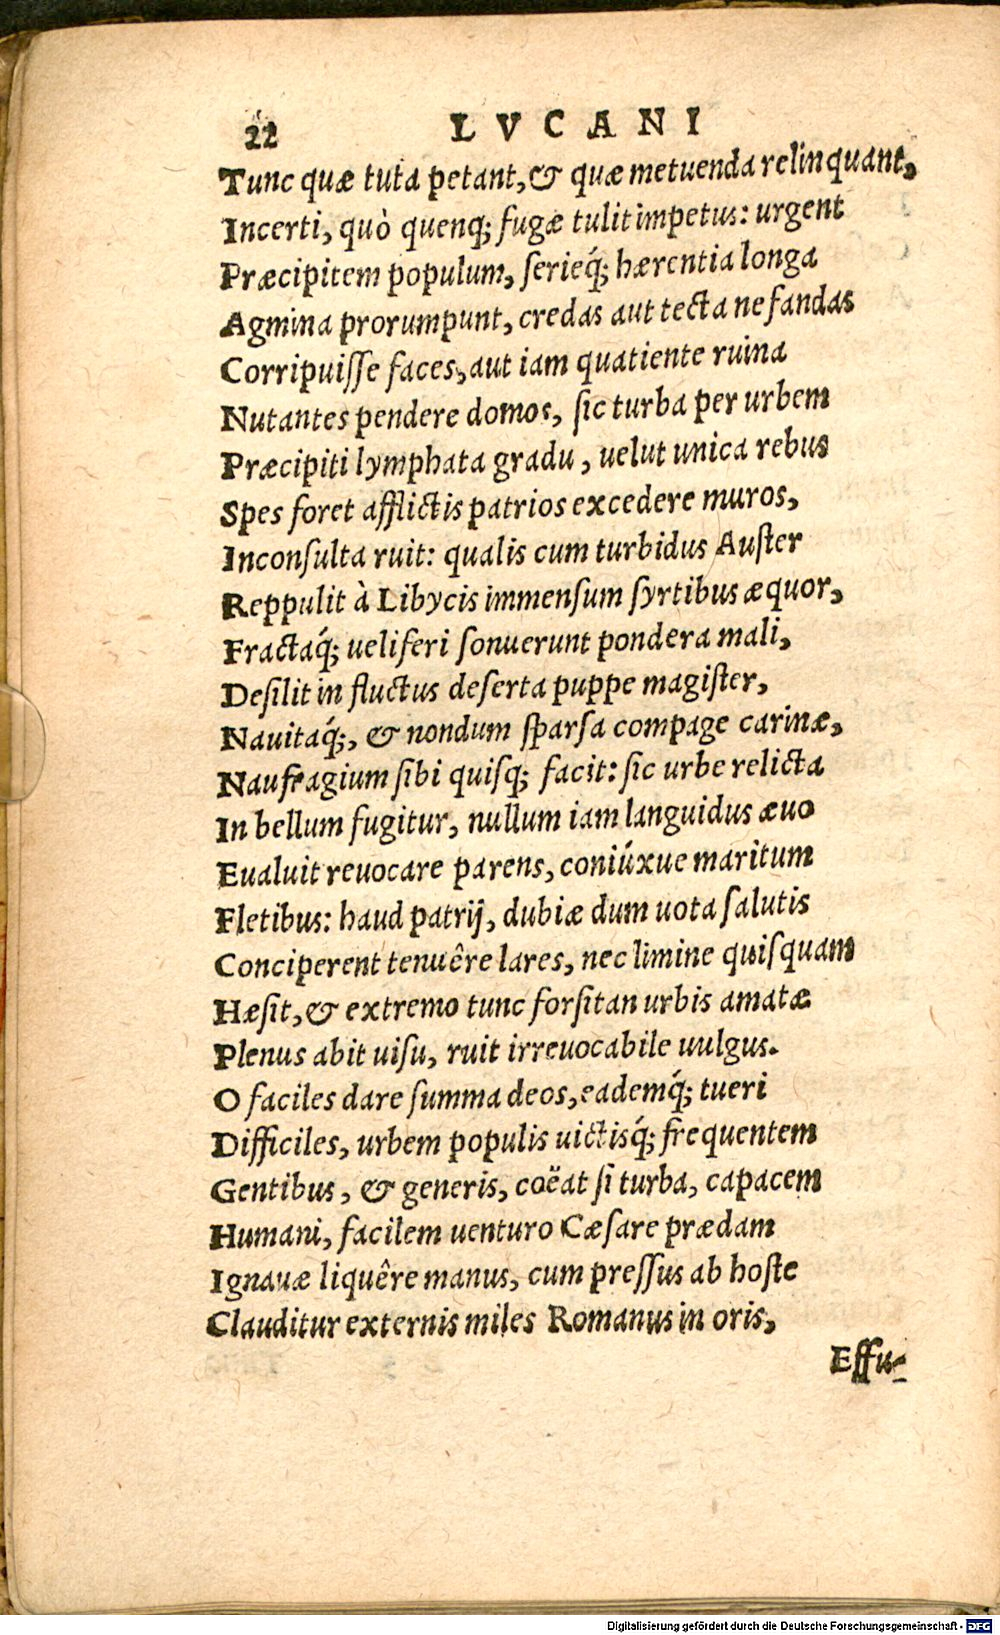 22 LVCANI
Tunc quæ tuta petant, & quæ metuenda relinquant,
Incerti, quò quenq; fugæ tulit impetus: urgent
Præcipitem populum, serieq́; hærentia longa
Agmina prorumpunt, credas aut tecta nefandas
Corripuisse faces, aut iam quatiente ruina
Nutantes pendere domos, sic turba per urbem
Præcipiti lymphata gradu, uelut unica rebus
Spes foret afflictis patrios excedere muros,
Inconsulta ruit: qualis cum turbidus Auster
Reppulit à Libycis immensum syrtibus æquor,
Fractaq́; ueliferi sonuerunt pondera mali,
Desilit in fluctus deserta puppe magister,
Nauitaq́;, & nondum sparsa compage carinæ,
Naufragium sibi quisq; facit: sic urbe relicta
In bellum fugitur, nullum iam languidus æuo
Eualuit reuocare parens, coniúxue maritum
Fletibus: haud patrij, dubiæ dum uota salutis
Conciperent tenuêre lares, nec limine quisquam
Hæsit, & extremo tunc forsitan urbis amatæ
Plenus abit uisu, ruit irreuocabile uulgus.
O faciles dare summa deos, eademq́; tueri
Difficiles, urbem populis uictisq́; frequentem
Gentibus, & generis, coëat si turba, capacem
Humani, facilem uenturo Cæsare prædam
Ignauæ liquêre manus, cum pressus ab hoste
Clauditur externis miles Romanus in oris,
Effu-
Digitalisierung gefördert durch die Deutsche Forschungsgemeinschaft - DFG